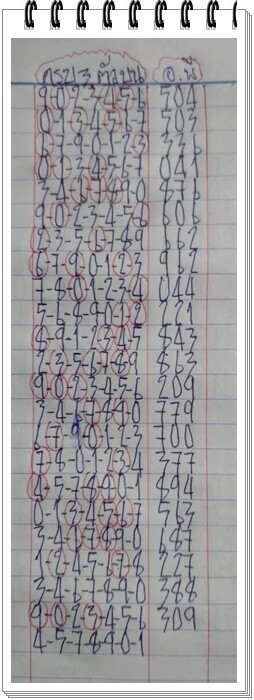 ครบ 3 ตัวบน อ.พี
9-0-2-3-4-5-6 504
0-1-3-4-5-6-7 503
6-7-9-0-1-2-3 336
0-1-2-3-4-5-6-7 041
3-4-6-7-8-9-0 876
9-0-2-3-4-5-6 606
2-3-5-6-7-8-9 662
6-7-9-0-1-2-3 962
7-8-0-1-2-3-4 044
5-7-8-9-0-1-2 221
8-9-1-2-3-4-5 543
2-3-5-6-7-8-9 863
9-0-2-3-4-5-6 209
3-4-6-7-8-9-0 779
6-7-9-0-1-2-3 700
7-8-0-1-2-3-4 377
4-5-7-8-9-0-1 894
0-1-3-4-5-6-7 563
3-4-6-7-8-9-0 687
1-2-4-5-6-7-8 227
3-4-6-7-8-9-0 388
9-0-2-3-4-5-6 309
4-5-7-8-9-0-1